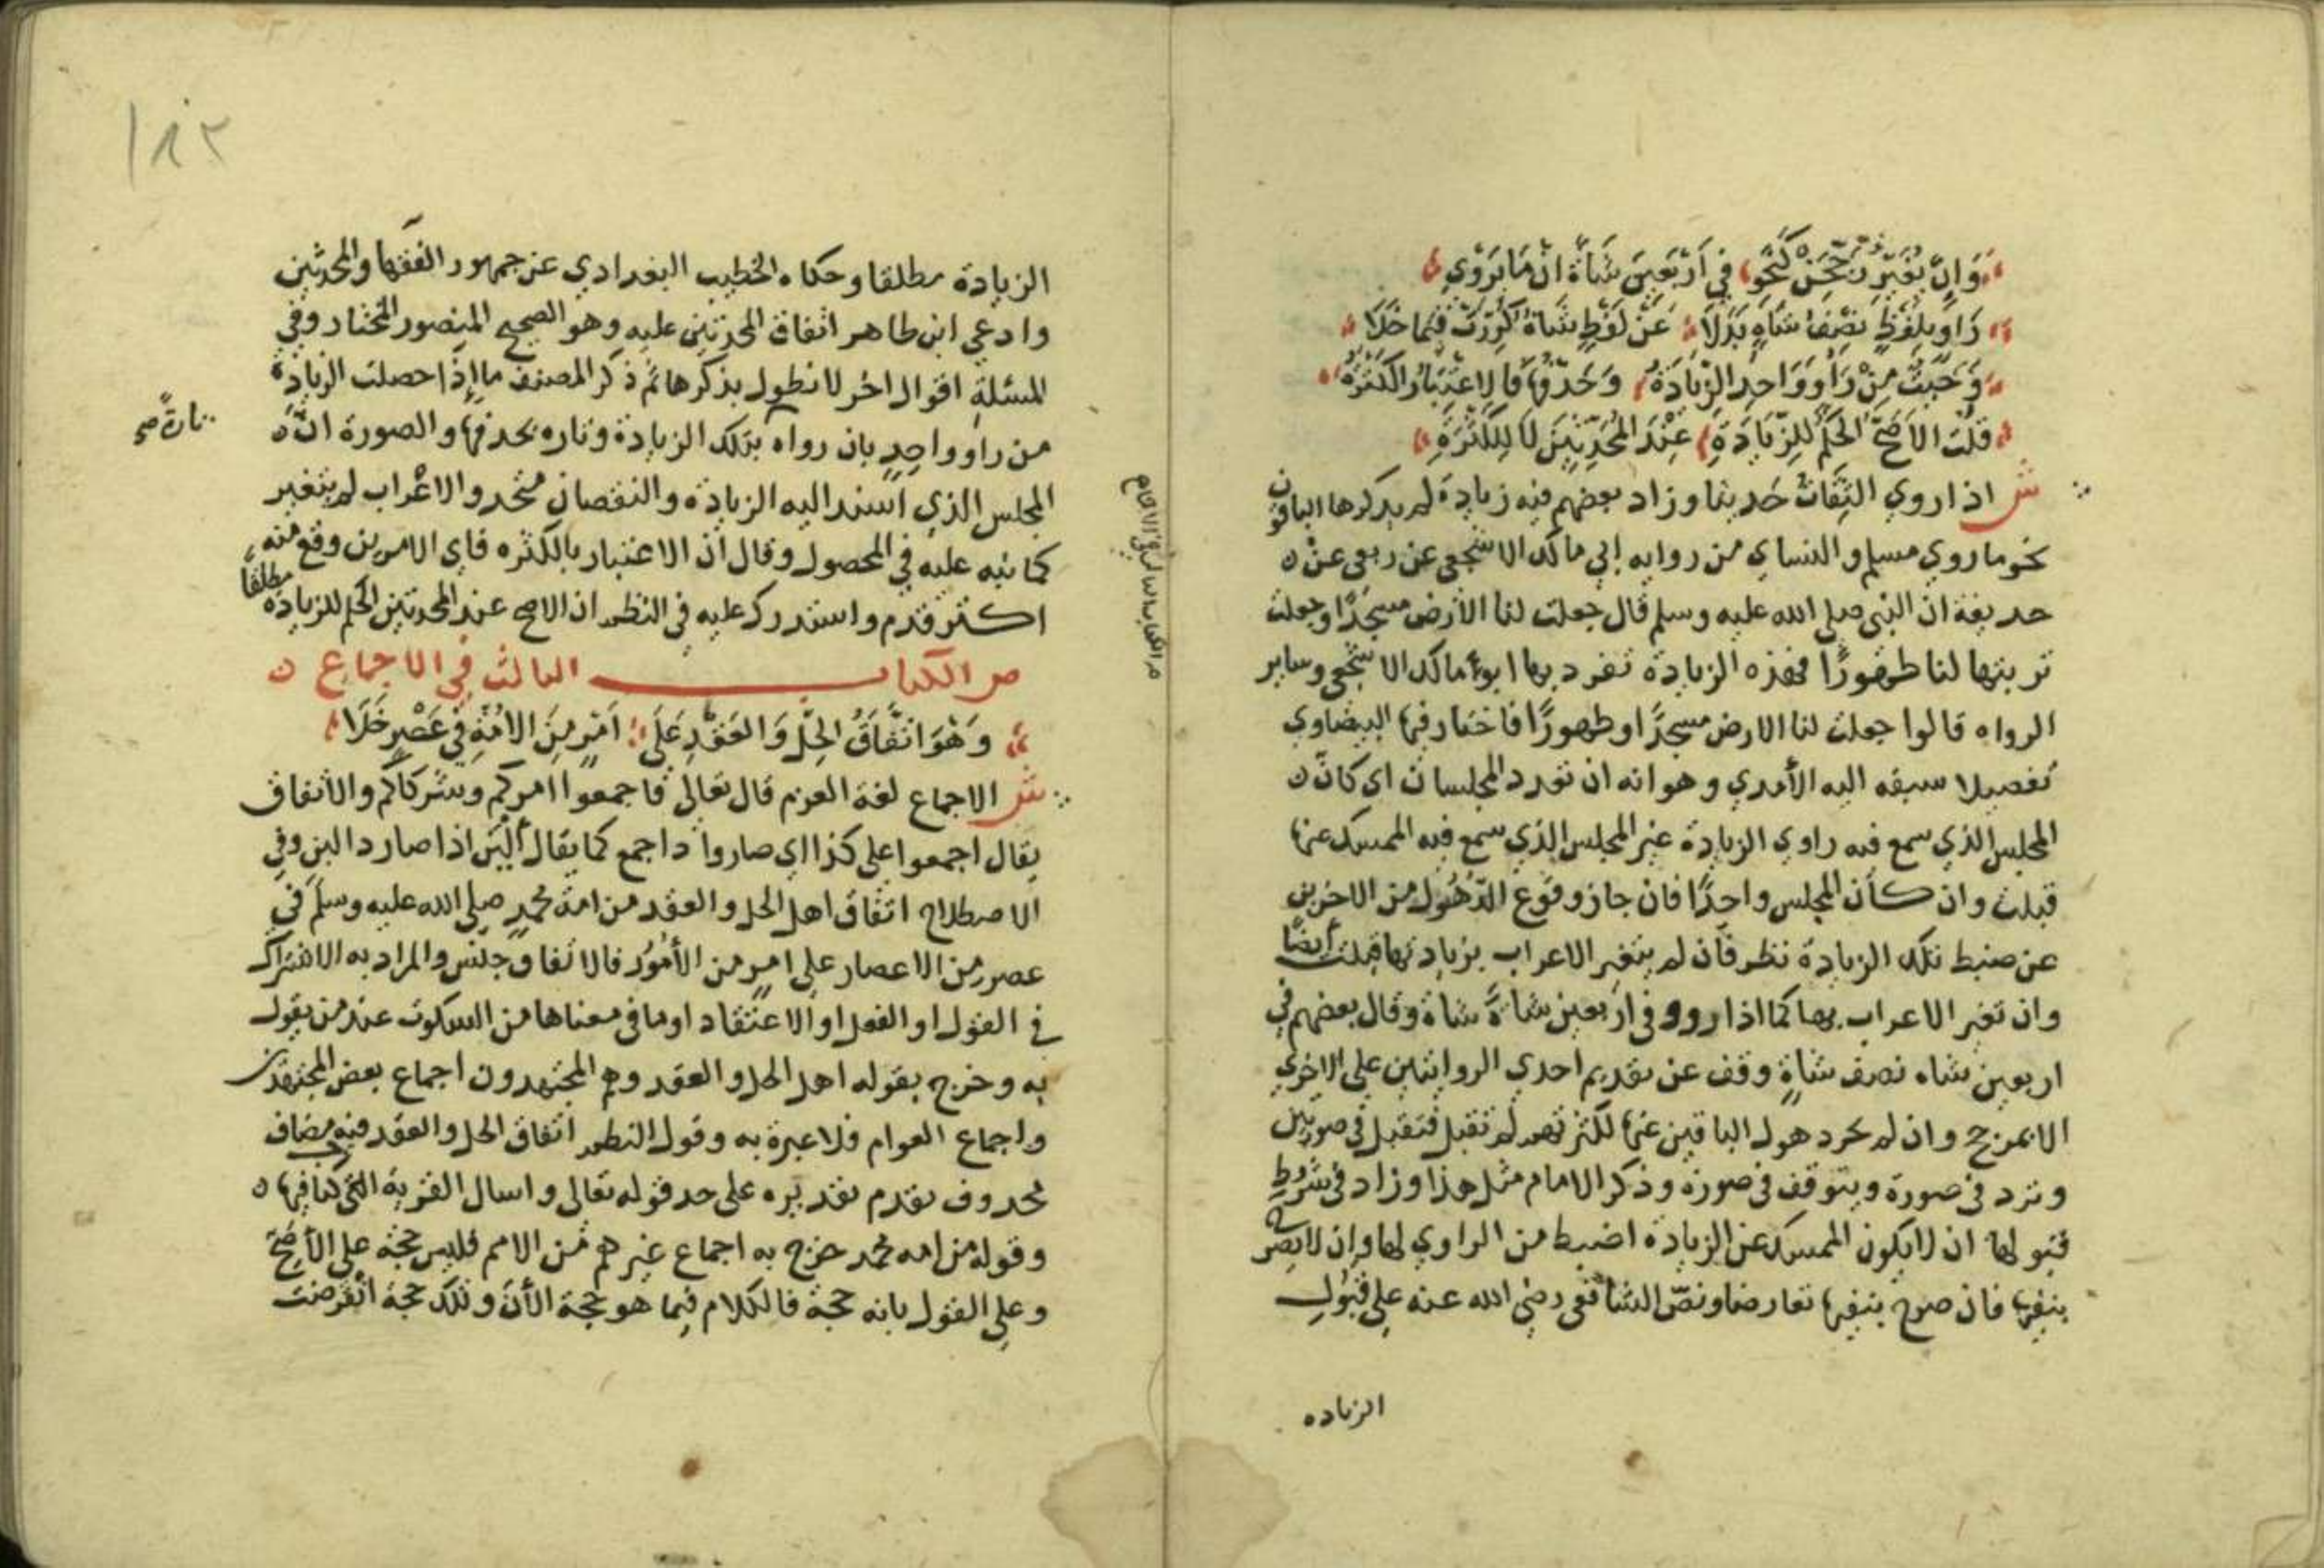 وَاِنْ يُغَيِّرْ نَحْوَ فِي اَرْبَعِينَ شَاةً اِنْ مَا يَرْوِي
رَاوٍ بِلَفْظِ نِصْفُ شَاةٍ بَدَلَا عَنْ لَفْظِ شَاةٌ كُرِّرَتْ فِيمَا خَلَا
وَحَيْثُ مِنْ رَاوٍ وَاحِدٍ الزِّيَادَةُ وَحَذْفُهَا فَالِاعْتِبَارُ الكَثْرَةُ
قُلْتُ الاَصَحُّ الحُكْمُ لِلزِّيَادَةِ عِنْدَ المُحَدِّثِينَ لَا لِلْكَثْرَةِ
ش اذا روي الثِّقَاتُ حديثا وزاد بعضهم فيه زيادة لم يذكرها الباقون
نحو ما روي مسلم والنساي من رواية ابي مالك الاشجعي عن ربعي عن
حذيفة ان النبي صلي الله عليه وسلم قال جعلت لنا الارض مسجدًا وجعلت
تربتها لنا طهورًا فهذه الزيادة تفرد بها ابو مالك الاشجعي وساير
الرواه قالوا جعلت لنا الارض مسجدًا وطهورًا فاختار فيها البيضاوي
تفصيلا سبقه اليه الآمدي وهو انه ان تعدد المجلسان اي كان
المجلس الذي سمع فيه راوي الزيادة غير المجلس الذي سمع فيه الممسك عنها
قبلت وان كان المجلس واحدًا فان جاز وقوع الذهول من الاخرين
عن ضبط تلك الزيادة نظر فان لم يتغير الاعراب بزيادتها قبلت أيضًا
وان تغير الاعراب بها كما اذا رووا في اربعين شاةً شاة وقال بعضهم في
اربعين شاه نصف شاةٍ وقف عن تقديم احدي الروايتين علي الاخري
الا بمرجح وان لم يجز ذهول الباقين عنها لكثرتهم لم تقبل فتقبل في صورتين
وترد في صورة ويتوقف في صورة وذكر الامام مثل هذا وزاد في شروط
قبولها ان لا يكون الممسك عن الزيادة اضبط من الراوي لها وان لا يصرح
بنفيها فان صرح بنفيها تعارضا ونصّ الشافعي رضي الله عنه علي قبول
الزياده
١٨٢
الزيادة مطلقا وحكاه الخطيب البغدادي عن جمهور الفقها والمحدثين
وادعي ابن طاهر اتفاق المحدثين عليه وهو الصحيح المنصور المختار وفي
المسئلة اقوال اخر لا نطول بذكرها ثم ذكر المصنف ما اذا حصلت الزيادة
من راوٍ واحدٍ بان رواه بتلك الزيادة وتاره بحذفها والصورة انّ
تارةً صح
المجلس الذي اسند اليه الزيادة والنقصان متحد والاعراب لم يتغير
كما نبه عليه في المحصول وقال ان الاعتبار بالكثره فاي الامرين وقع منه
اكثر قدم واستدرك عليه في النظم ان الاصح عند المحدثين الحكم للزيادة مطلقًا
ص الكتاب الثالث في الاجماع
وَهُوَ اتِّفَاقُ الحَلِّ وَالعَقْدِ عَلَى اَمْرٍ مِنَ الاُمَّةِ فِي عَصْرٍ خَلَا
ش الاجماع لغة العزم قال تعالي فاجمعوا امركم وشركاكم والاتفاق
يقال اجمعوا علي كذا اي صاروا ذا جمع كما يقال ألبن اذا صار ذا لبن وفي
الاصطلاح اتفاق اهل الحل والعقد من امة محمدٍ صلي الله عليه وسلم في
عصر من الاعصار علي امرٍ من الأمور فالاتفاق جنس والمراد به الاشتراك
في القول او الفعل او الاعتقاد او ما في معناها من السكوت عند من يقول
به وخرج بقوله اهل الحل والعقد وهم المجتهدون اجماع بعض المجتهدين
واجماع العوام فلا عبرة به وقول النظم اتفاق الحل والعقد فيه مضاف
محذوف تقدم تقديره علي حد قوله تعالي واسال القرية التي كنا فيها
وقوله من امه محمد خرج به اجماع غيرهم من الامم فليس حجة علي الأصح
وعلي القول بانه حجة فالكلام فيما هو حجة الآن وتلك حجة انقرضت